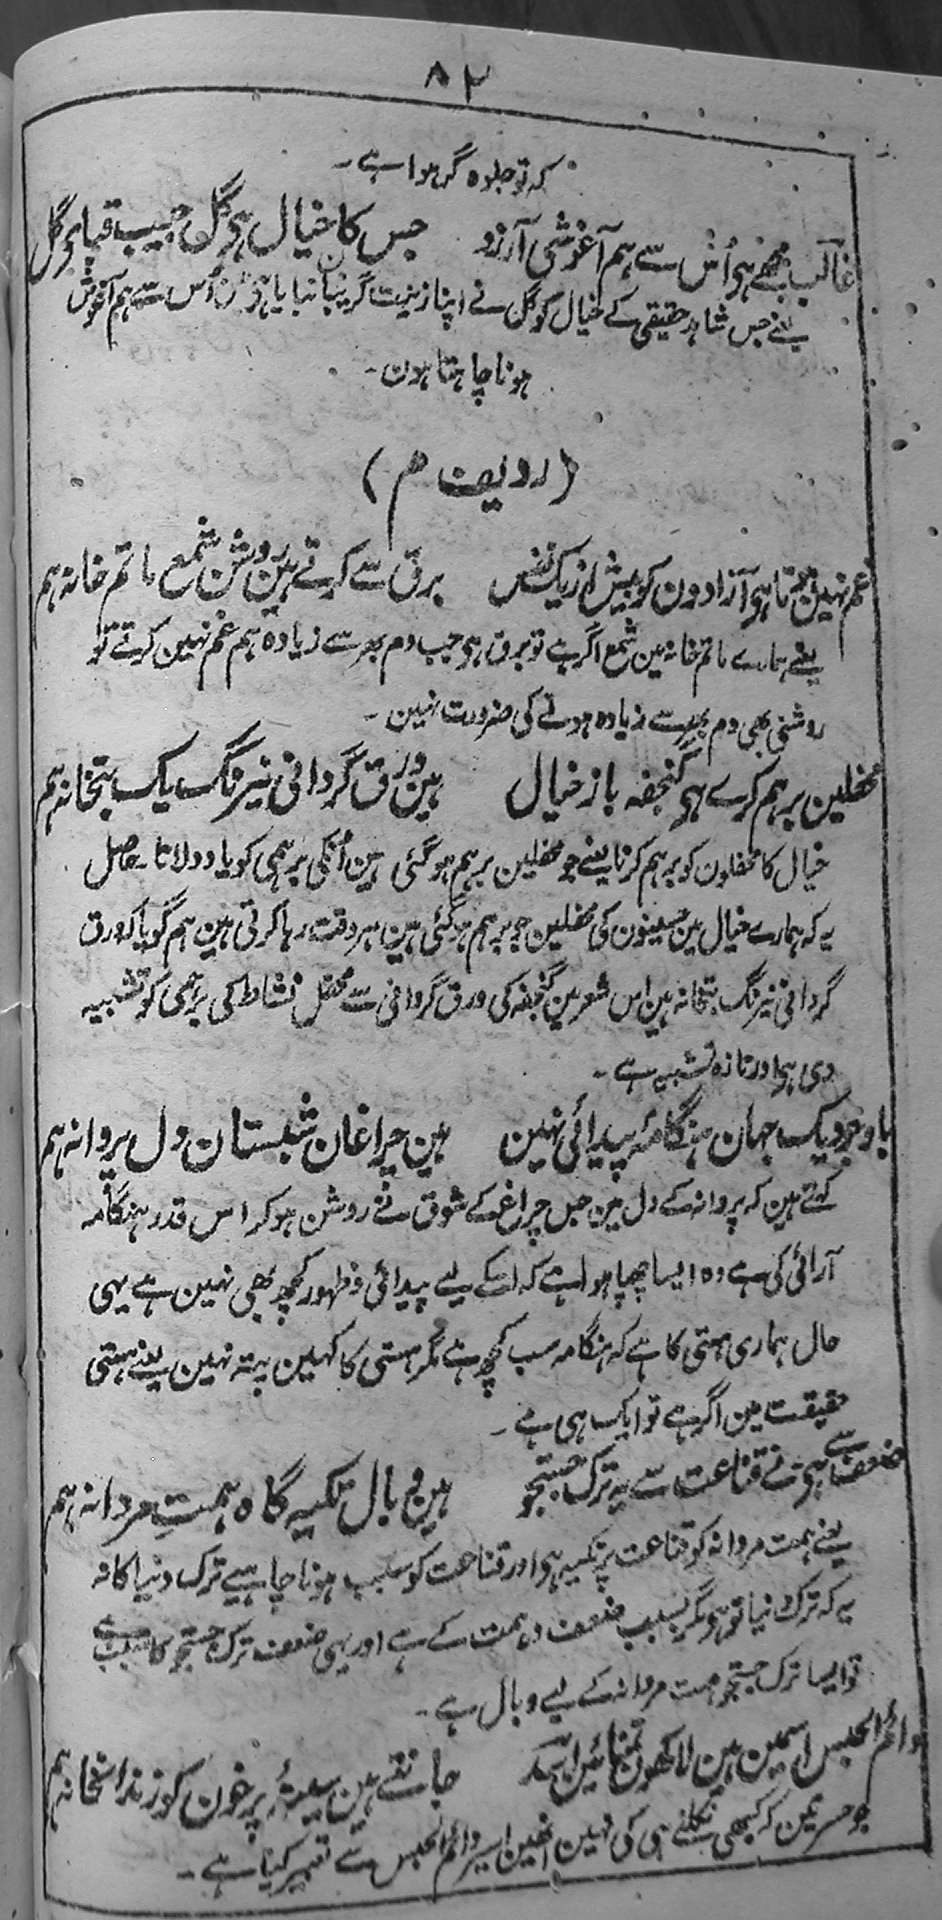 ۸۲
کہ تو جلوہ گر ہوا ہے۔
غالب مجھے ہو اُس سے ہم آغوشی آرزو جس کا خیال ہو گل جیب قباے گل
یعنے جس شاہد حقیقی کے خیال کو گل نے اپنا زینت گریبان بنایا ہو مین اُس سے ہم آغوش
ہونا چاہتا ہون۔
(ردیف م)
غم نہین ہوتا ہو آزادون کو بیش از یک نفس برق سے کرتے ہین روشن شمع ماتم خانہ ہم
یعنے ہمارے ماتم خانہ مین شمع اگر ہے تو برق ہو جب دم بھر سے زیادہ ہم غم نہین کرتے تو
روشنی بھی دم بھر سے زیادہ ہونے کی ضرورت نہین۔
محفلین برہم کرے ہو گنجفہ باز خیال ہین ورق گردانی نیرنگ یک بتخانہ ہم
خیال کا محفلون کو برہم کرنا یعنے جو محفلین برہم ہو گئی ہین اُنکی برہمی کو یاد دلانا۔ حاصل
یہ کہ ہمارے خیال مین حسینون کی محفلین جو برہم ہو گئی ہین ہر وقت رہا کرتی ہین ہم گویا کہ ورق
گردانی نیرنگ بتخانہ ہین اس شعر مین گنجفہ کی ورق گردانی سے محفل نشاط کی برہمی کو تشبیہ
دی ہو اور تازہ تشبیہ ہے۔
باوجود یک جہان ہنگامۂ پیدائی نہین ہین چراغان شبستان دل پروانہ ہم
کہتے ہین کہ پروانہ کے دل مین جس چراغ کے شوق نے روشن ہو کر اس قدر ہنگامہ
آرائی کی ہے وہ ایسا چھپا ہوا ہے کہ اسکے لیے پیدائی و ظہور کچھ بھی نہین ہے یہی
حال ہماری ہستی کا ہے کہ ہنگامہ سب کچھ ہے مگر ہستی کا کہین پتہ نہین یعنے ہستی
حقیقت مین اگر ہے تو ایک ہی ہے۔
ضعف سے ہو نے قناعت سے یہ ترک جستجو ہین وبال تکیہ گاہ ہمت مردانہ ہم
یعنے ہمت مردانہ کو قناعت پر تکیہ ہو اور قناعت کو سبب ہونا چاہیے ترک دنیا کا نہ
یہ کہ ترک دنیا تو ہو مگر بسبب ضعف ہمت کے ہے اور یہی ضعف ترک جستجو کا سبب ہے
تو ایسا ترک جستجو ہمت مردانہ کے لیے وبال ہے۔
دائم الحبس اسمین ہین لاکھون تمنائین اسد جانتے ہین سینۂ پرخون کو زندانخانہ ہم
جو حسرتین کہ کبھی نکلنے ہی کی نہین انھین اسیر دائم الحبس سے تعبیر کیا ہے۔